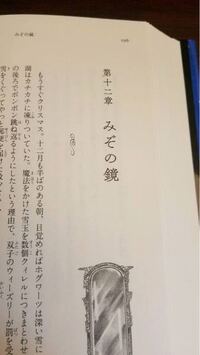 みぞの鏡
第十二章
みぞの鏡
もうすぐクリスマス。十二月も半ばのある朝、目覚めればホグワーツは深い雪に
湖はカチカチに凍りついていた。魔法をかけた雪玉を数個クィレルにつきまとわせ
の後ろでポンポン跳ね返るようにしたという理由で、双子のウィーズリーが罰を受
雪をくぐってやっと